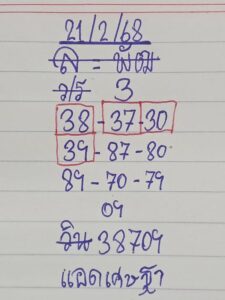 21/2/68
ล = พัฒ
ว/ร 3
38-37-30
39-87-80
89-70-79
09
วิน 38709
แอดเศษฐา